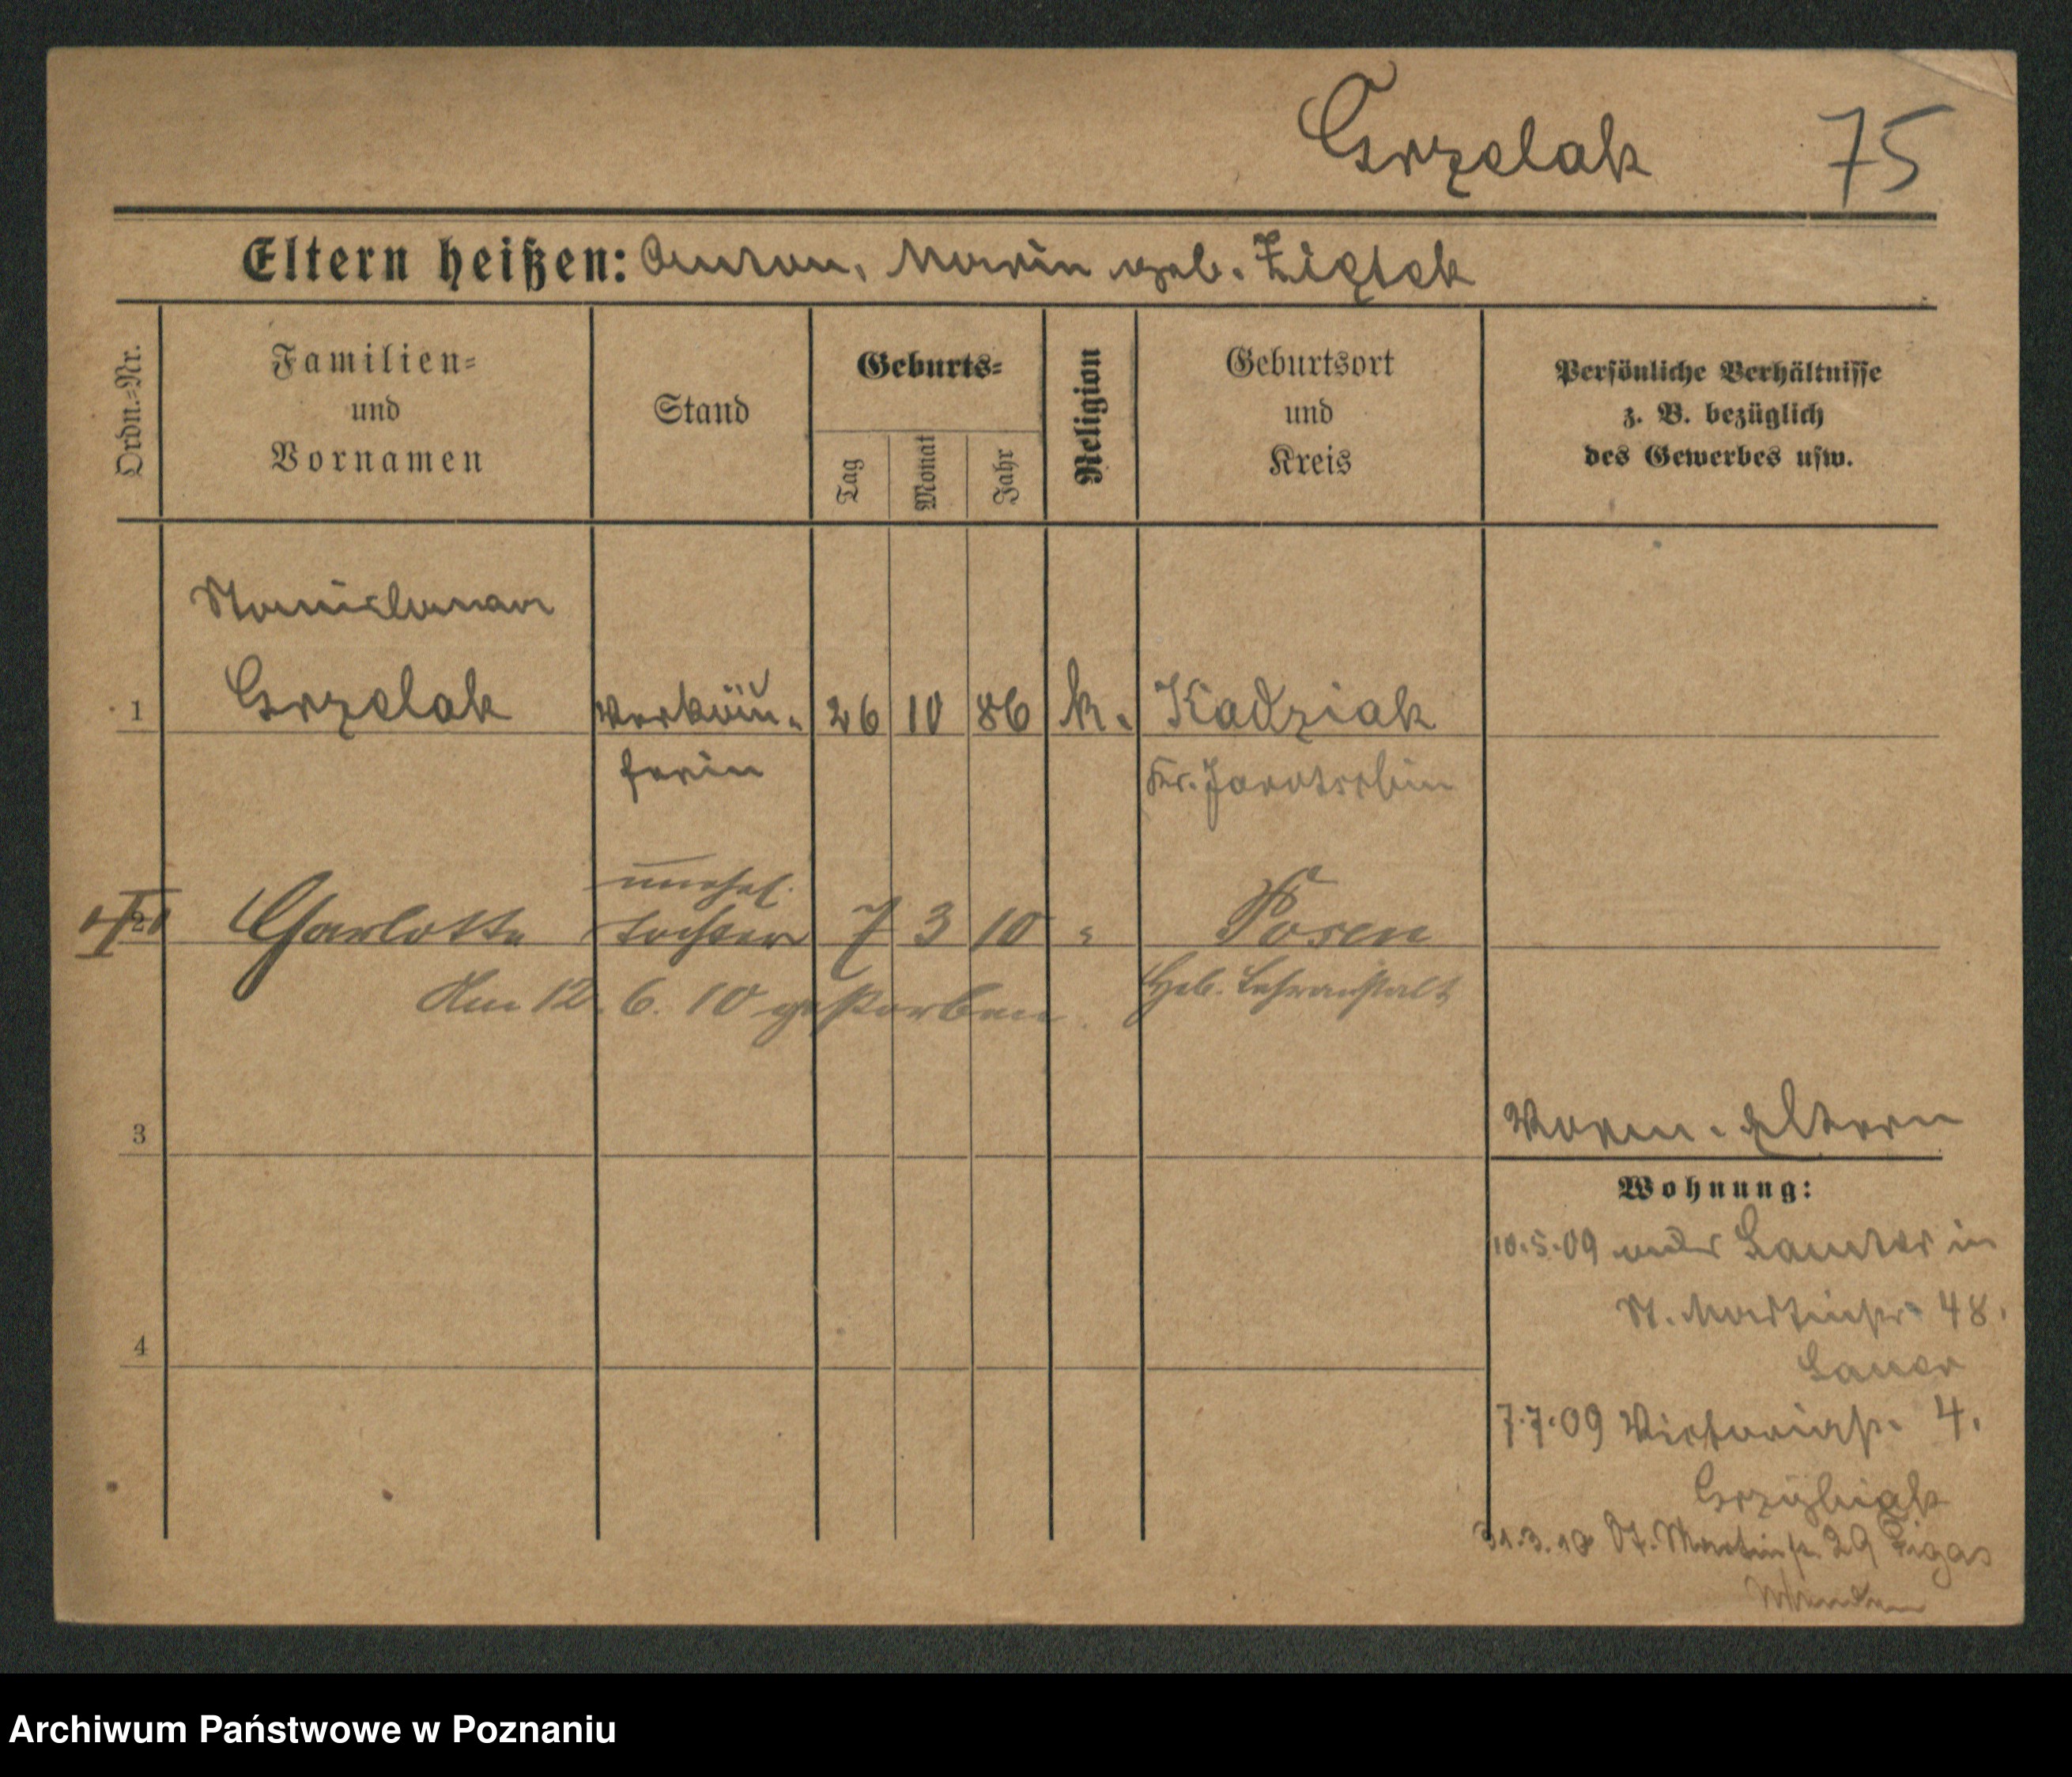 Grzelak 75
Eltern heißen: Anton, Marie geb. Ziętek
Ordn.-Nr.
Familien-
und
Vornamen
Stand
Geburts-
Tag
Monat
Jahr
Religion
Geburtsort
und
Kreis
Persönliche Verhältnisse
z. B. bezüglich
des Gewerbes usw.
Stanislawa
1 Grzelak Verkäu- 26 10 86 k. Kadziak
ferin Kr. Jarotschin
unehel.
2 Charlotte Tochter 7 3 10 " Posen
Am 12. 6. 10 gestorben Heb. Lehranstalt
3
Eltern
Wohnung:
10.5.09 in
St. Martinstr. 48.
Lauer
4
7.7.09 Victoriastr. 4.
31.3.10 St. Martinstr. 29
Archiwum Państwowe w Poznaniu